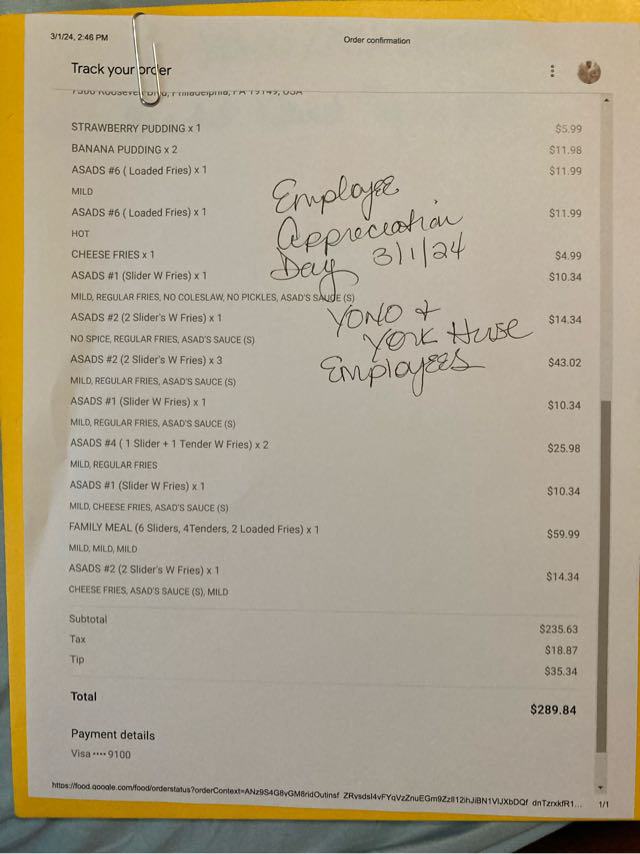 3/1/24, 2:46 PM
Order confirmation
Track your order
STRAWBERRY PUDDING x 1 $5.99
BANANA PUDDING x 2 $11.98
ASADS #6 ( Loaded Fries) x 1 $11.99
MILD
ASADS #6 ( Loaded Fries) x 1 $11.99
HOT
CHEESE FRIES x 1 $4.99
ASADS #1 (Slider W Fries) x 1 $10.34
MILD, REGULAR FRIES, NO COLESLAW, NO PICKLES, ASAD'S SAUCE (S)
ASADS #2 (2 Slider's W Fries) x 1 $14.34
NO SPICE, REGULAR FRIES, ASAD'S SAUCE (S)
ASADS #2 (2 Slider's W Fries) x 3 $43.02
MILD, REGULAR FRIES, ASAD'S SAUCE (S)
ASADS #1 (Slider W Fries) x 1 $10.34
MILD, REGULAR FRIES, ASAD'S SAUCE (S)
ASADS #4 ( 1 Slider + 1 Tender W Fries) x 2 $25.98
MILD, REGULAR FRIES
ASADS #1 (Slider W Fries) x 1 $10.34
MILD, CHEESE FRIES, ASAD'S SAUCE (S)
FAMILY MEAL (6 Sliders, 4Tenders, 2 Loaded Fries) x 1 $59.99
MILD, MILD, MILD
ASADS #2 (2 Slider's W Fries) x 1 $14.34
CHEESE FRIES, ASAD'S SAUCE (S), MILD
Subtotal $235.63
Tax $18.87
Tip $35.34
Total $289.84
Payment details
Visa •••• 9100
1/1
Employee
Appreciation
Day 3/1/24
YONO +
York House
Employees